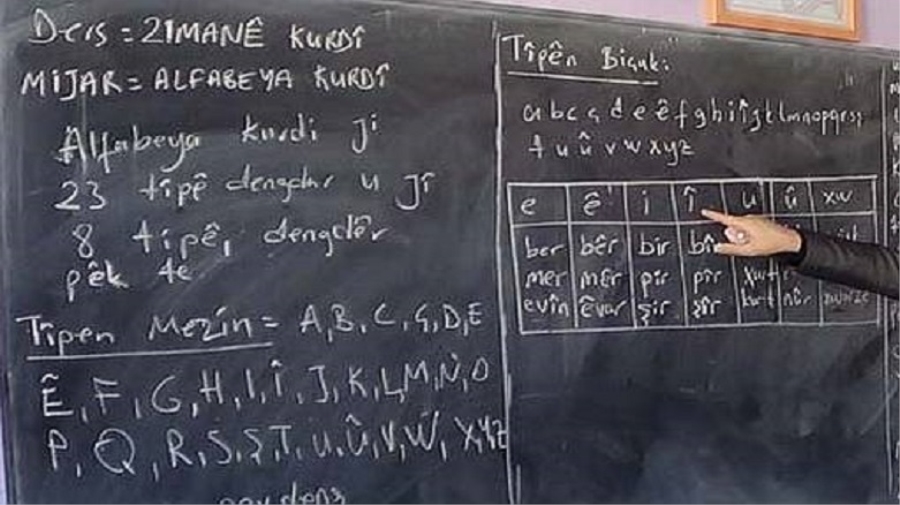 Ders = ZIMANÊ KURDÎ
MIJAR = ALFABEYA KURDÎ
Alfabeya kurdi ji
23 tîpê dengdar u jî
8 tîpê, dengdêr
pêk te
Tîpen Mezin = A, B, C, Ç, D, E
Ê, F, G, H, I, Î, J, K, L, M, N, O
P, Q, R, S, Ş, T, U, Û, V, W, X, Y, Z
Tîpên Biçuk:
a b c ç d e ê f g h i î j k l m n o p q r s ş
t u û v w x y z
e ê i î u û xw
ber bêr bir
mer mêr pir pîr
evîn êvar şir şîr kurt nûr